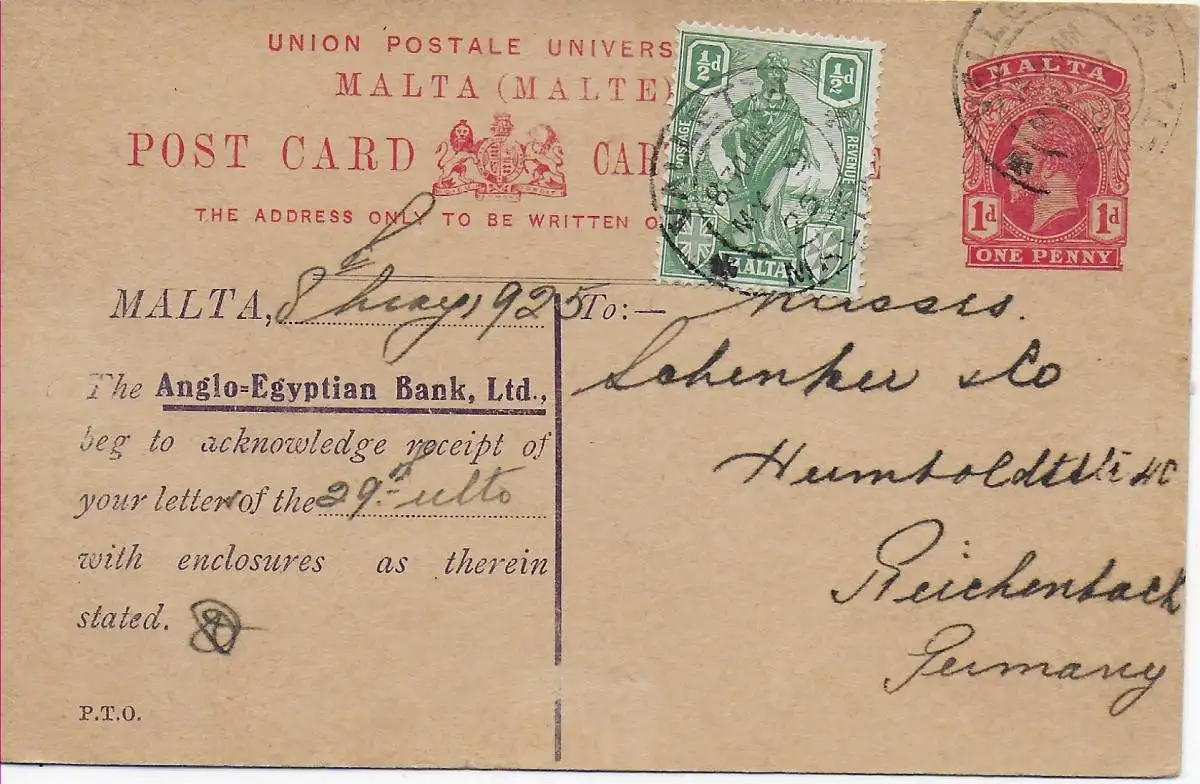 UNION POSTALE UNIVERS
MALTA (MALTE)
POST CARD CAR E
THE ADDRESS ONLY TO BE WRITTEN O
½d ½d
POSTAGE REVENUE
MALTA
MALTA
1d 1d
ONE PENNY
VALLETTA
MALTA
MALTA, 8th May, 1925 To:— Messrs.
The Anglo=Egyptian Bank, Ltd.,
Schenker & Co
beg to acknowledge receipt of
your letter of the 29th ulto
Humboldtstr 40
with enclosures as therein
stated.
Reichenbach
Germany
P.T.O.